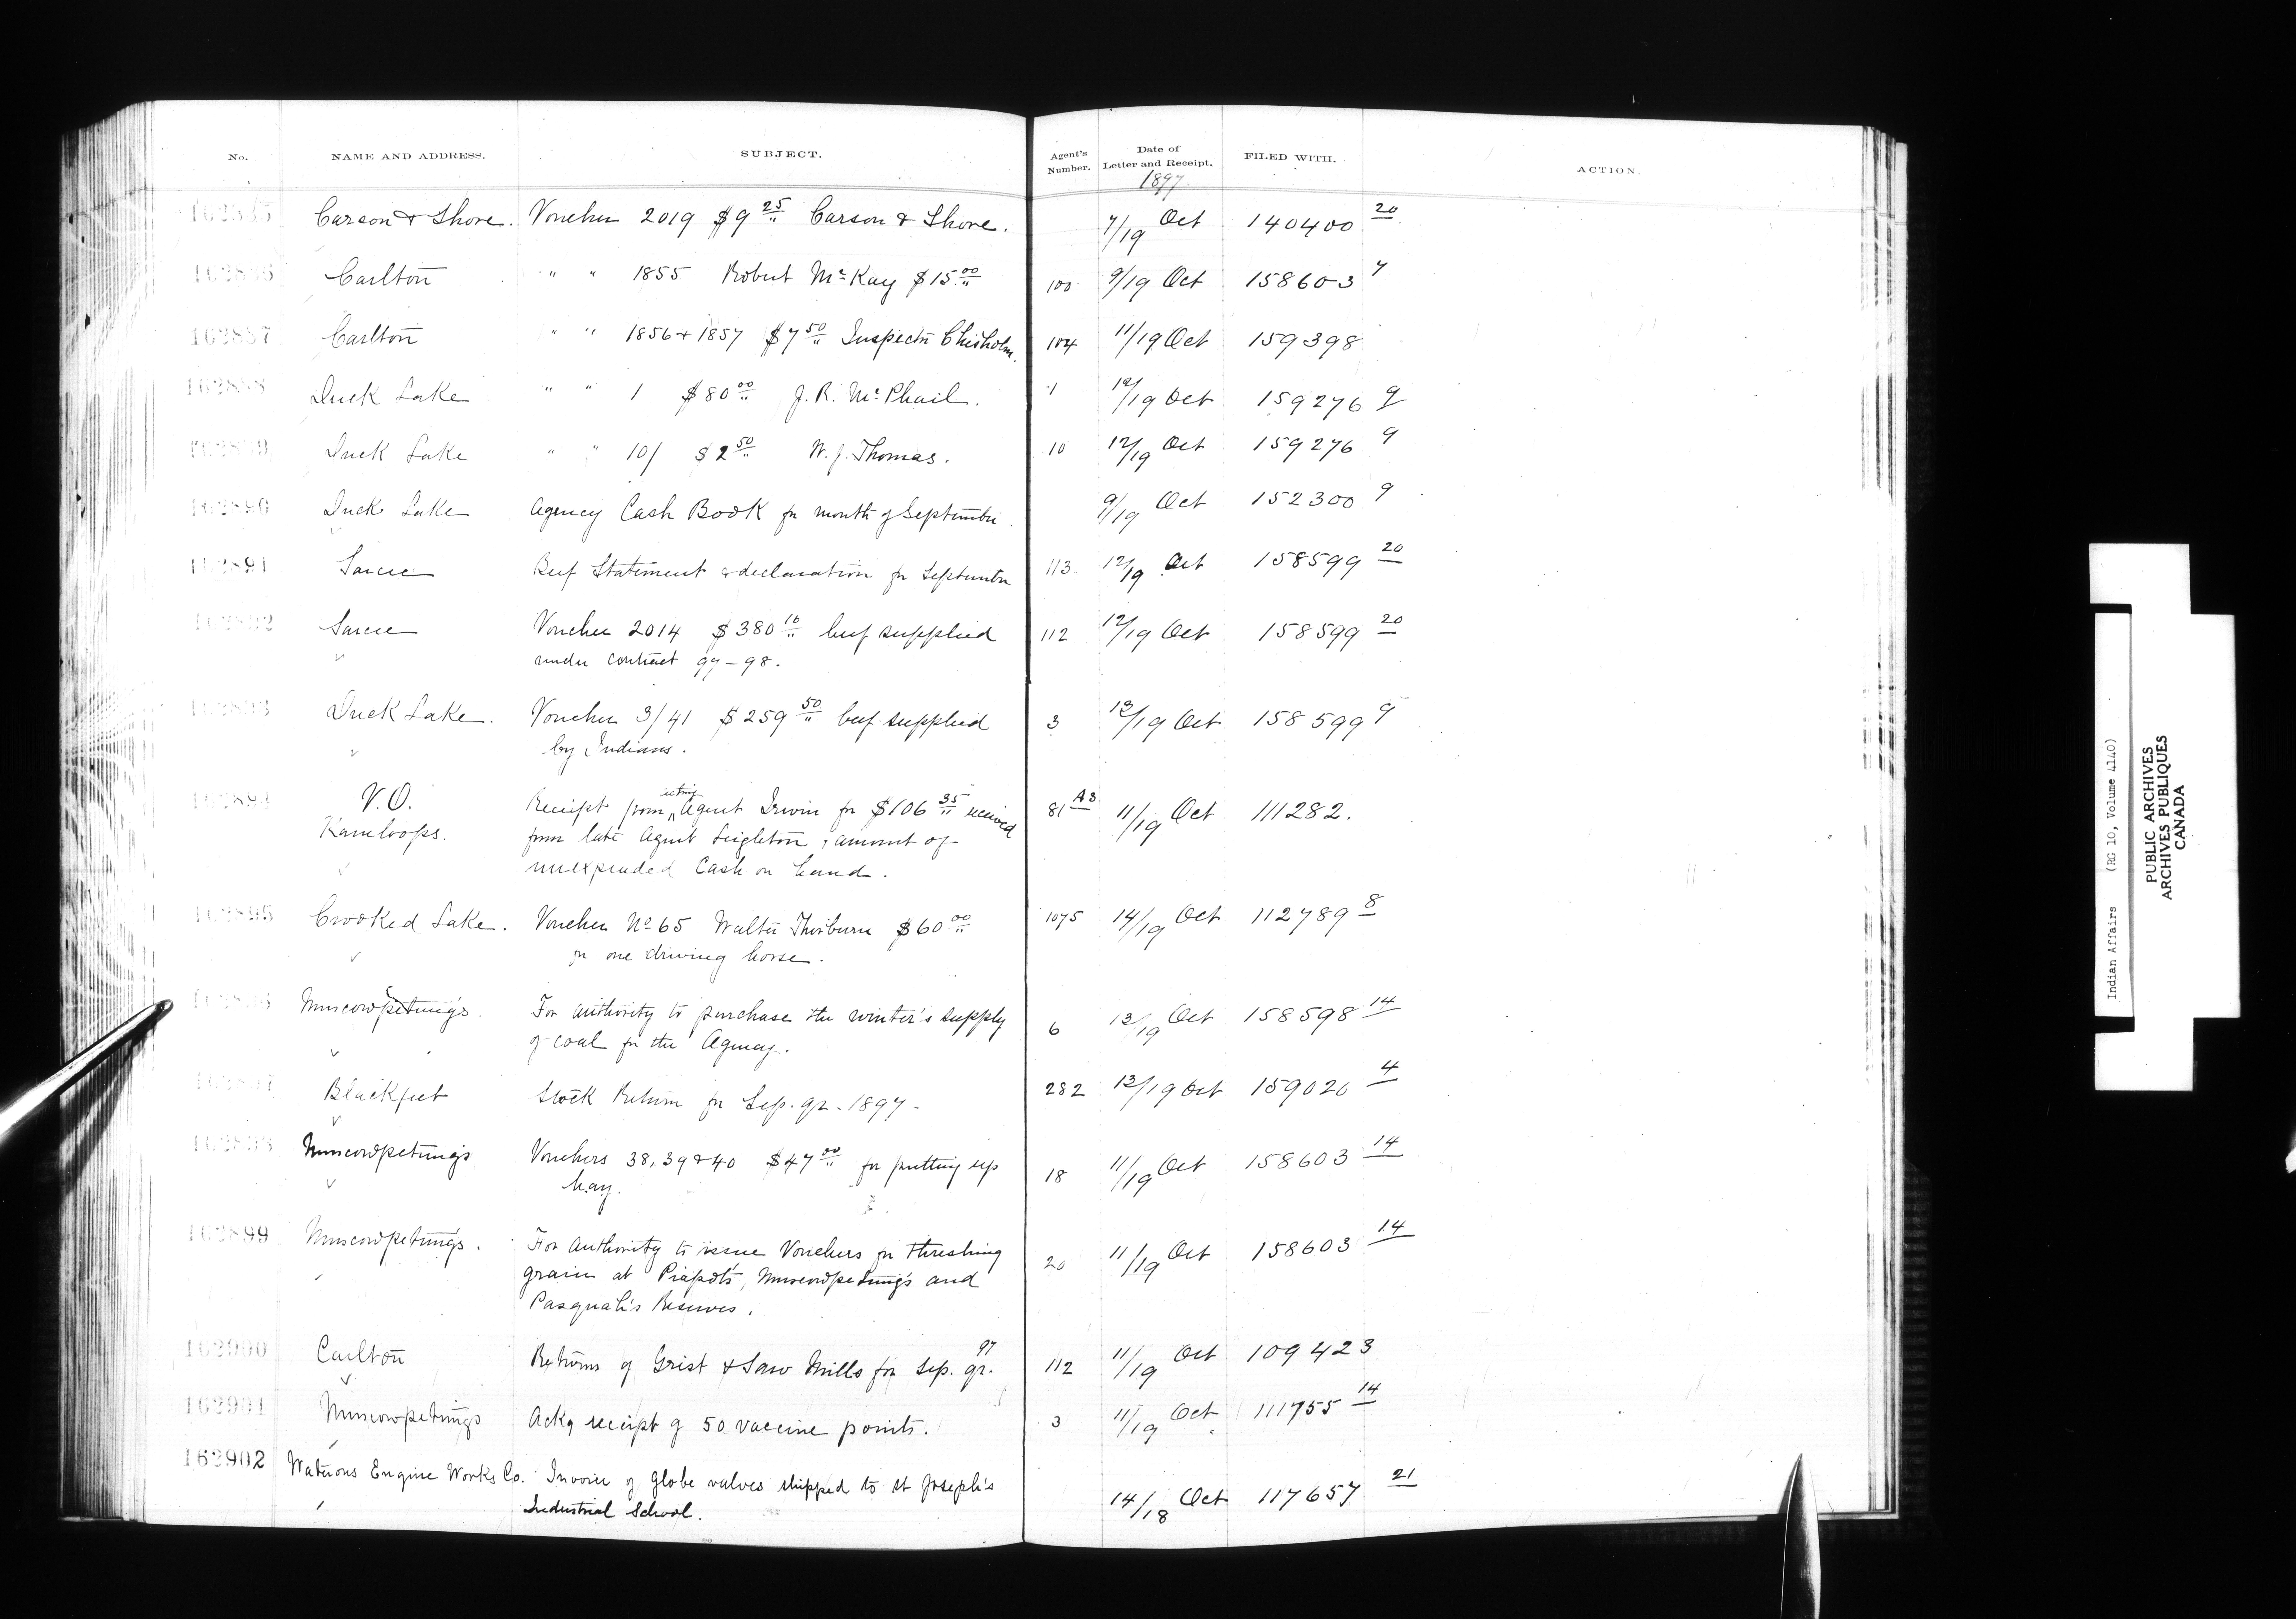 No. NAME AND ADDRESS. SUBJECT. Agent's Number. Date of Letter and Receipt. FILED WITH. ACTION.
1897
162885 Carson & Shore. Voucher 2019 $9 25 Carson & Shore. 7/19 Oct 140400 20
162886 Carlton " " 1855 Robert McKay $15 00 100 9/19 Oct 158603 7
162887 Carlton " " 1856 & 1857 $7 50 Inspector Chisholm. 104 11/19 Oct 159398
162888 Duck Lake " " 1 $80 00 J. R. McPhail. 1 12/19 Oct 159276 9
162889 Duck Lake " " 10/ $2 50 W. J. Thomas. 10 12/19 Oct 159276 9
162890 Duck Lake Agency Cash Book for month of September. 9/19 Oct 152300 9
162891 Sarcee Beef Statement & declaration for September 113 12/19 Oct 158599 20
162892 Sarcee Voucher 2014 $380 10 beef supplied 112 12/19 Oct 158599 20
under contract 97-98.
162893 Duck Lake. Voucher 3/41 $259 50 beef supplied 3 13/19 Oct 158599 9
by Indians.
162894 V.O. Receipt from acting Agent Irwin for $106 35 received 81 A3 11/19 Oct 111282.
Kamloops. from late Agent Leighton, amount of
unexpended Cash on hand.
162895 Crooked Lake. Voucher No 65 Walter Thorburn $60 00 1075 14/19 Oct 112789 8
for one driving horse.
162896 Muscowpetung's. For authority to purchase the winter's supply 6 13/19 Oct 158598 14
of coal for the Agency.
162897 Blackfeet Stock Return for Sep. qr. 1897. 282 13/19 Oct 159020 4
162898 Muscowpetungs Vouchers 38, 39 & 40 $47 00 for putting up 18 11/19 Oct 158603 14
hay.
162899 Muscowpetung's. For Authority to issue Vouchers for threshing 20 11/19 Oct 158603 14
grain at Piapot's, Muscowpetung's and
Pasquah's Reserves.
162900 Carlton Returns of Grist & Saw Mills for Sep. qr. 97 112 11/19 Oct 109423
162901 Muscowpetungs Ackg receipt of 50 vaccine points. 3 11/19 Oct 111755 14
162902 Waterous Engine Works Co. Invoice of globe valves shipped to St Joseph's 14/18 Oct 117657 21
Industrial School.
Indian Affairs (RG 10, Volume 4140)
PUBLIC ARCHIVES
ARCHIVES PUBLIQUES
CANADA